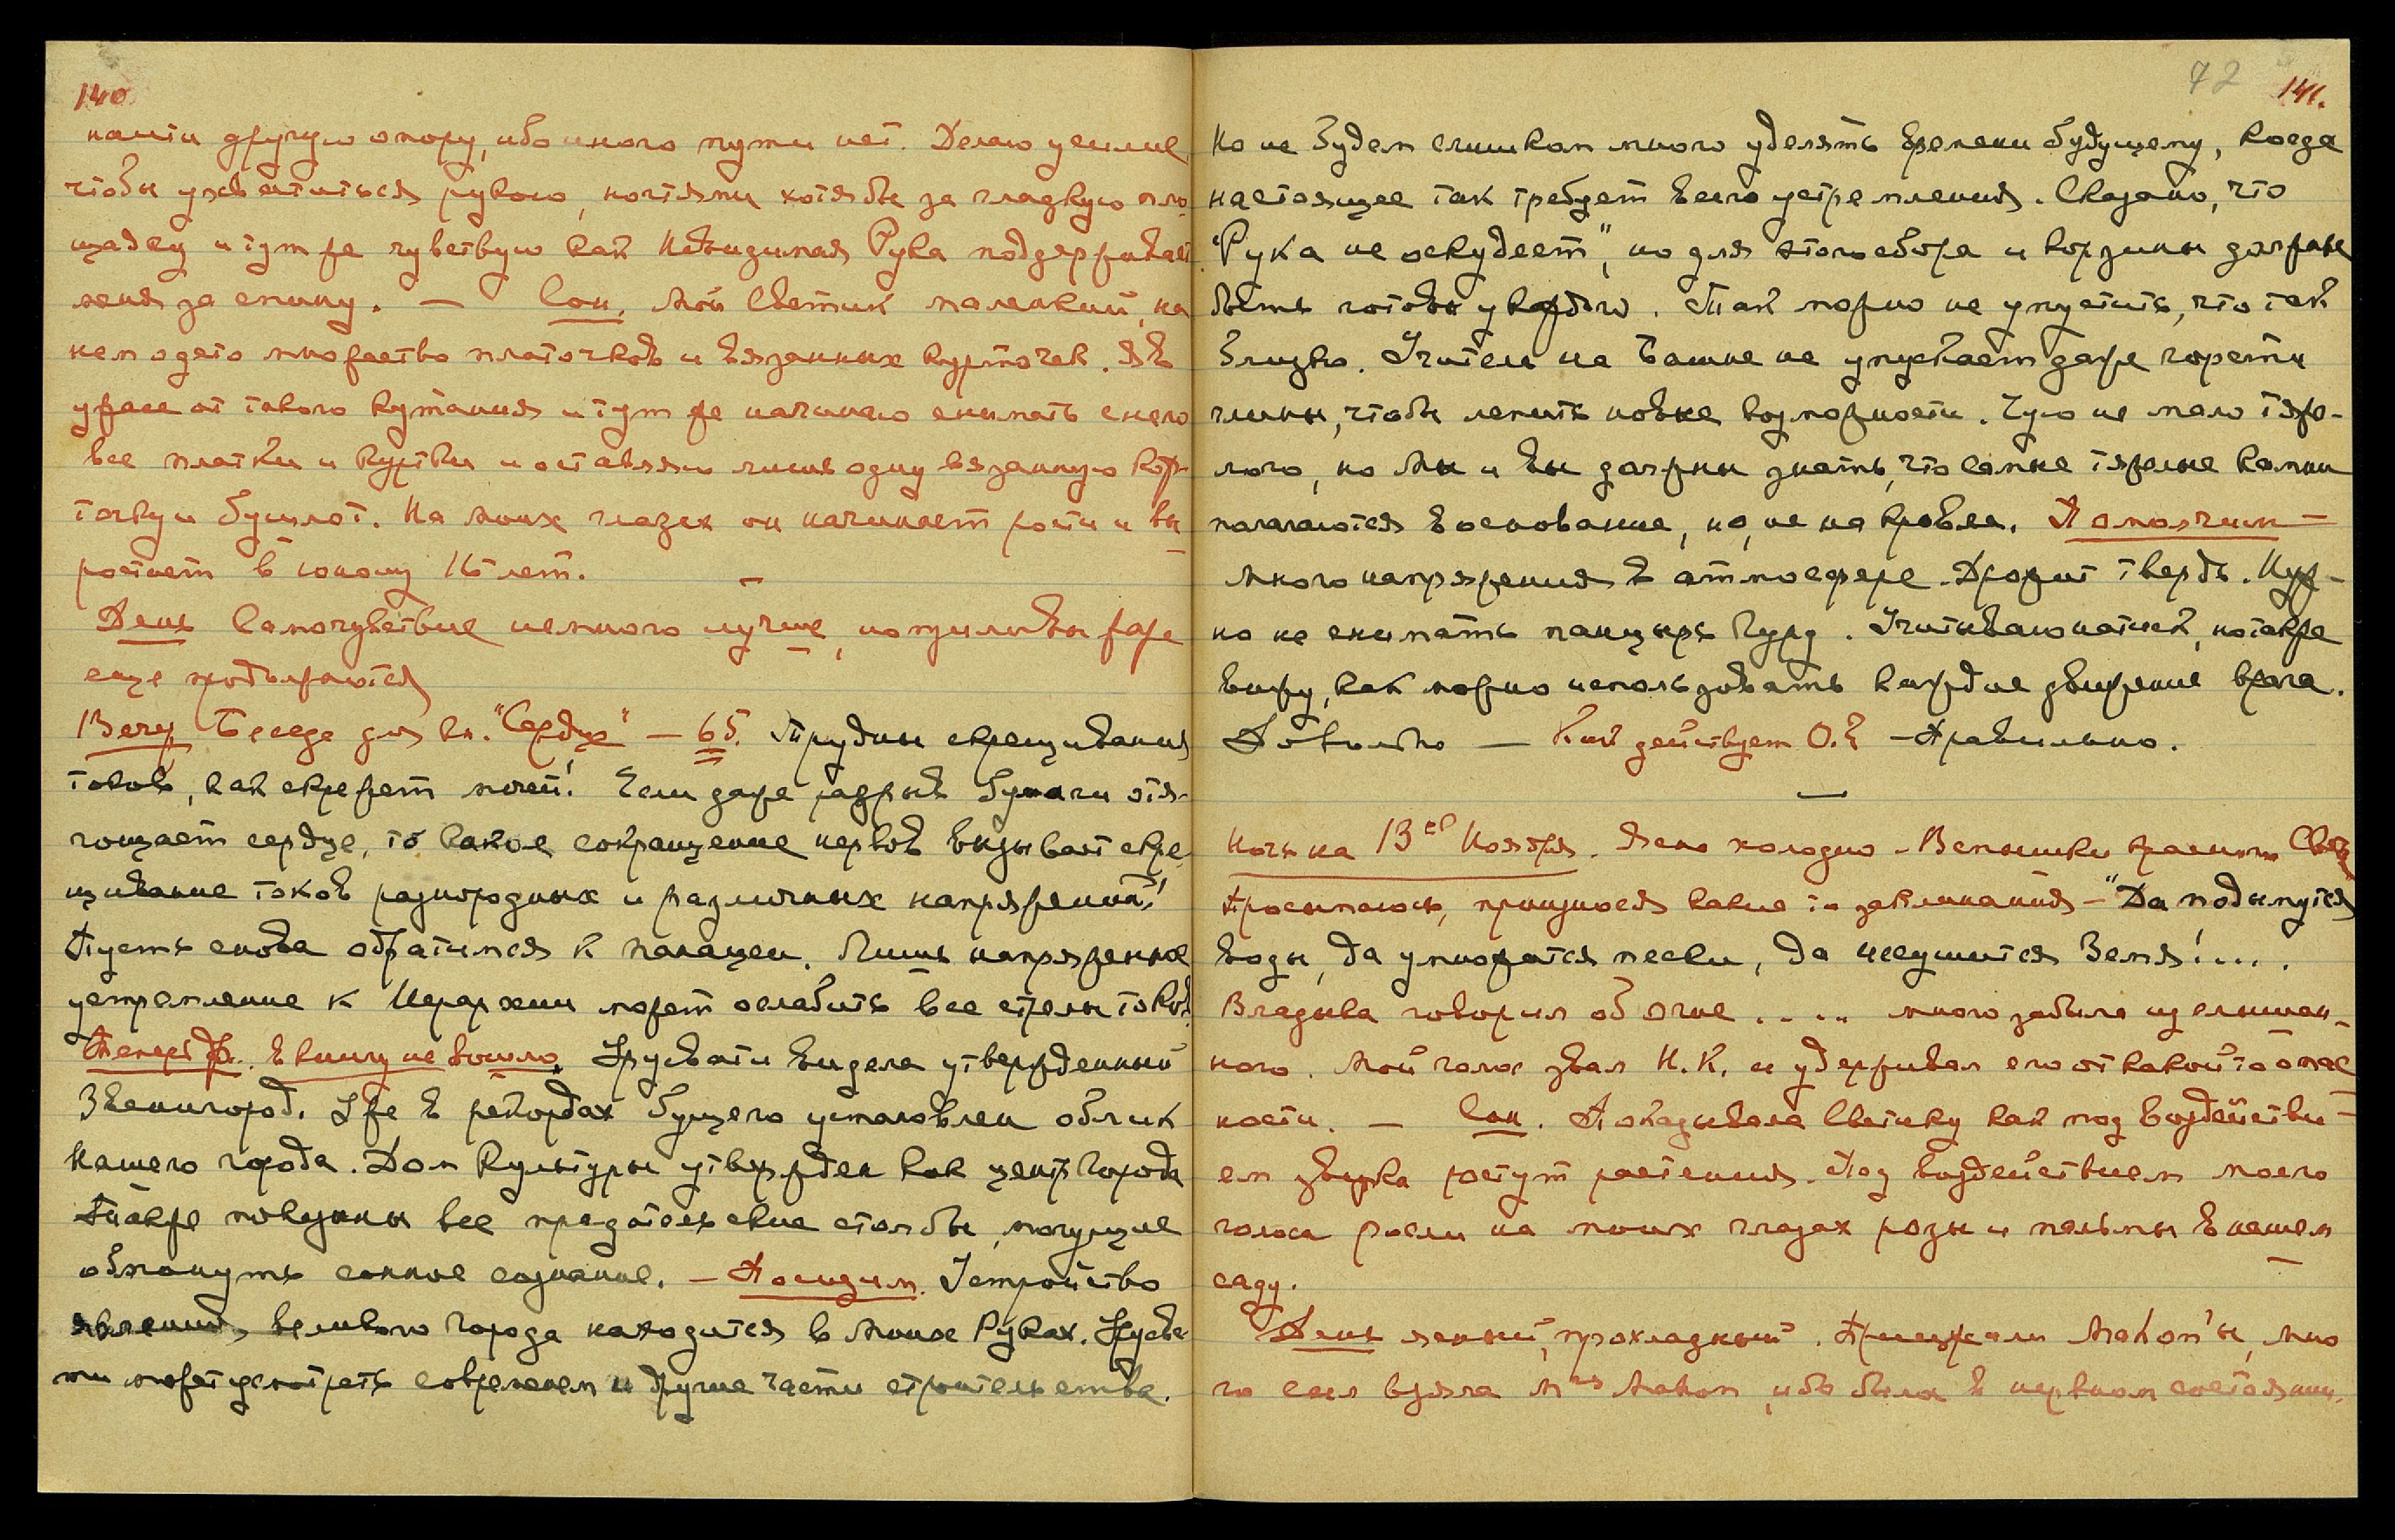 140
найти другую опору, ибо иного пути нет. Делаю усилие,
чтобы ухватиться рукою, ногтями хотя бы за гладкую пло-
щадку и тут же чувствую как Невидимая Рука поддерживает
меня за спину. — Сон. Мой Светик маленький, на
нем одето множество платочков и вязанных курточек. Я в
ужасе от такого кутания и тут же начинаю снимать с него
все платки и куртки и оставляю лишь одну вязанную кор-
точку и бушлот. На моих глазах он начинает рости и вы-
ростает в юношу 16 лет. —
День Самочувствие немного лучше, но приливы жара
еще продолжаются
Вечер Беседа для кн. "Сердце" — 65. Трудны скрещивания
токов, как скрежет мечей! Если даже разрыв бумаги отя-
гощает сердце, то какое сокращение нервов вызывает скре-
щивание токов разнородных и различных напряжений!
Пусть снова обратимся к панацеи. Лишь напряженное
устремление к Иерархии может ослабить все стрелы токов.
В книгу не вошло. Урусвати видела утвержденный
Звенигород. Уже в рекордах будущего установлен облик
Нашего города. Дом Культуры утвержден как центр Города
Также показаны все предательские столбы, могущие
обмануть сонное сознание. — Посидим. Устройство
явления великого Города находится в Моих Руках. Урусва-
ти может усмотреть со временем и другие части строительства.
72 141.
Но не будем слишком много уделять времени будущему, когда
настоящее так требует всего устремления. Сказано, что
"Рука не оскудеет", но для этого сбора и корзины должны
быть готовы у каждого. Так можно не упустить, что так
близко. Учитель на Башне не упускает даже горсти
глины, чтобы лепить новые возможности. Чую не мало тяже-
лого, но Мы и вы должны знать, что самые тяжелые камни
полагаются в основание, но, не на кровлю. Помолчим —
Много напряжения в атмосфере. Дрожит твердь. Нуж-
но не снимать панцырь Гуру. Учитываю натиск, но также
вижу, как можно использовать каждое движение врага.
Довольно — Как действует О.? — Правильно.
—
Ночь на 13ое Ноября. Ясно холодно. Вспышки красного Света
Просыпаюсь, произнося какие то заклинания — "Да подымутся
воды, да умножатся пески, да иссушится Земля!....
Владыка говорил об огне ..... много забыла из слышан-
ного. Мой голос звал Н.К. и удерживал его от какой то опас-
ности. — Сон. Показывала Светику как под воздействи-
ем звука ростут растения. Под воздействием моего
голоса росли на моих глазах розы и пальмы в нашем
саду.
День ясный, прохладный. Приезжали Mahon'ы, мно-
го сил взяла Mrs Mahon, ибо была в нервном состоянии.